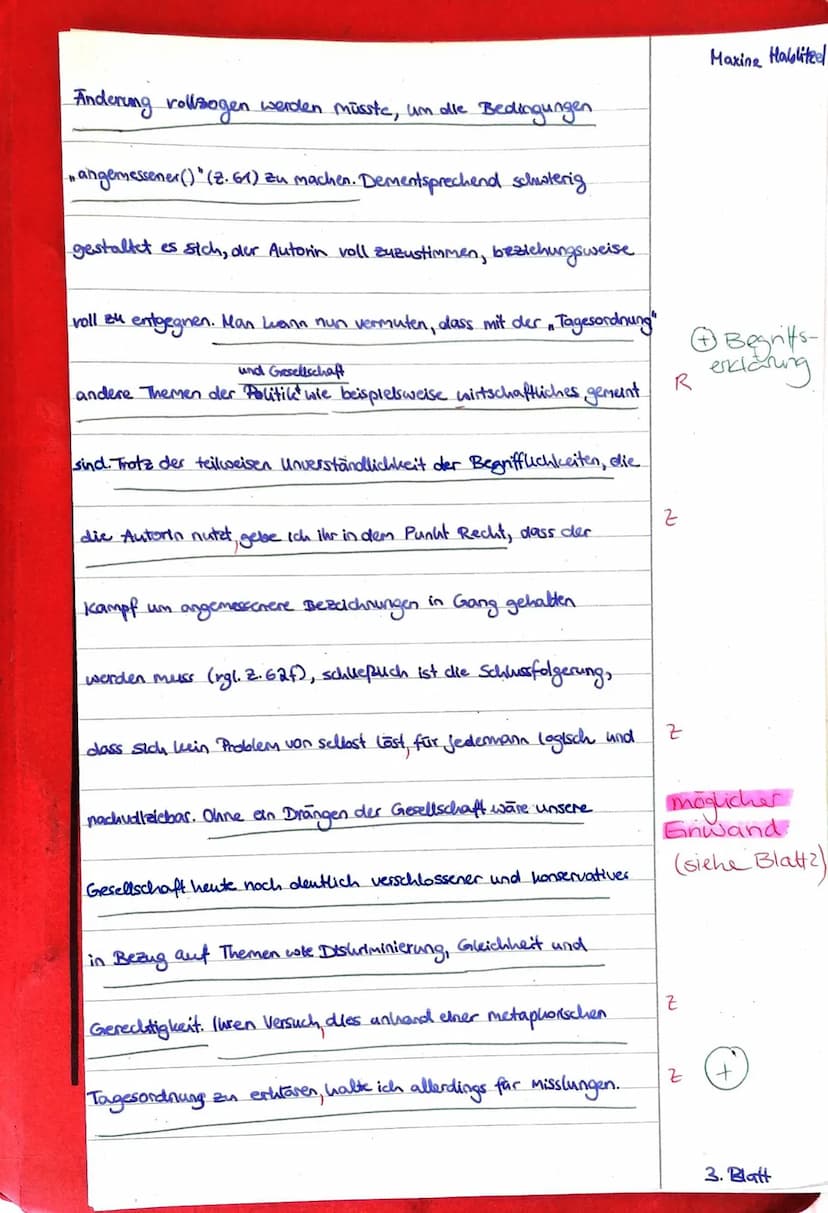 Maxine Hablitzel
Änderung vollzogen werden müsste, um die Bedingungen
„angemessener()" (Z. 61) zu machen. Dementsprechend schwierig
gestaltet es sich, der Autorin voll zuzustimmen, beziehungsweise
voll zu entgegnen. Man kann nun vermuten, dass mit der „Tagesordnung"
⊕ Begriffs-
erklärung
und Gesellschaft
andere Themen der Politik wie beispielsweise wirtschaftliches, gemeint
R
sind. Trotz der teilweisen Unverständlichkeit der Begrifflichkeiten, die
die Autorin nutzt, gebe ich ihr in dem Punkt Recht, dass der
Z
Kampf um angemessenere Bezeichnungen in Gang gehalten
werden muss (vgl. Z. 62f), schließlich ist die Schlussfolgerung,
dass sich kein Problem von selbst löst, für jedermann logisch und
Z
nachvollziehbar. Ohne ein Drängen der Gesellschaft wäre unsere
möglicher
Einwand
(siehe Blatt 2)
Gesellschaft heute noch deutlich verschlossener und konservativer
in Bezug auf Themen wie Diskriminierung, Gleichheit und
Gerechtigkeit. Ihren Versuch, dies anhand einer metaphorischen
Z
Tagesordnung zu erklären, halte ich allerdings für misslungen.
Z
+
3. Blatt